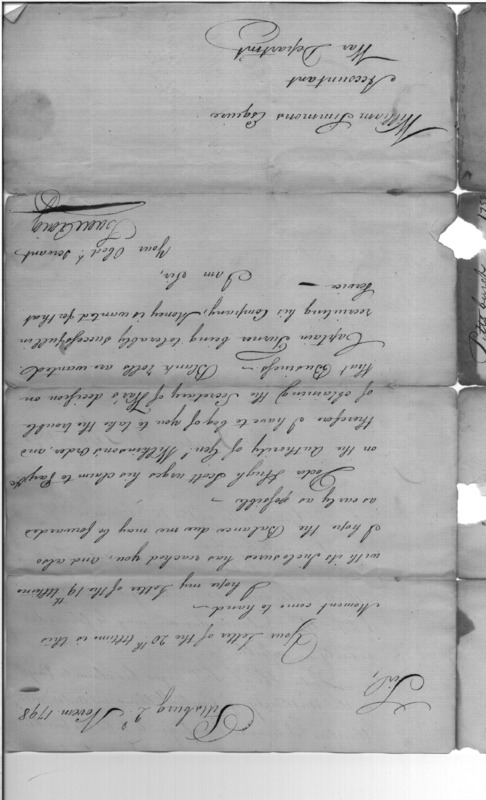 Pittsburg 2d Novem 1798
Sir,
Your Letter of the 20th Ultimo is this
Moment come to hand —
I hope my Letter of the 19th Ultimo
with its Inclosures has reached you, and also
I hope the Balance due me may be forwarded
as early as possible —
Doctr Hugh Scott urges his claim to Pay &c
on the Authority of Genl Wilkinsons Order, and,
therefore I have to beg of you to take the trouble
of obtaining the Secretary of War's decision on
that Business — Blank rolls are wanted
Captain Turner being tolerably successfull in
recruiting his Company, Money is wanted for that
Service —
I am Sir,
Your Obedt Servant
Isaac Craig
William Simmons Esquire
Accountant
War Department
Pittsburgh
179